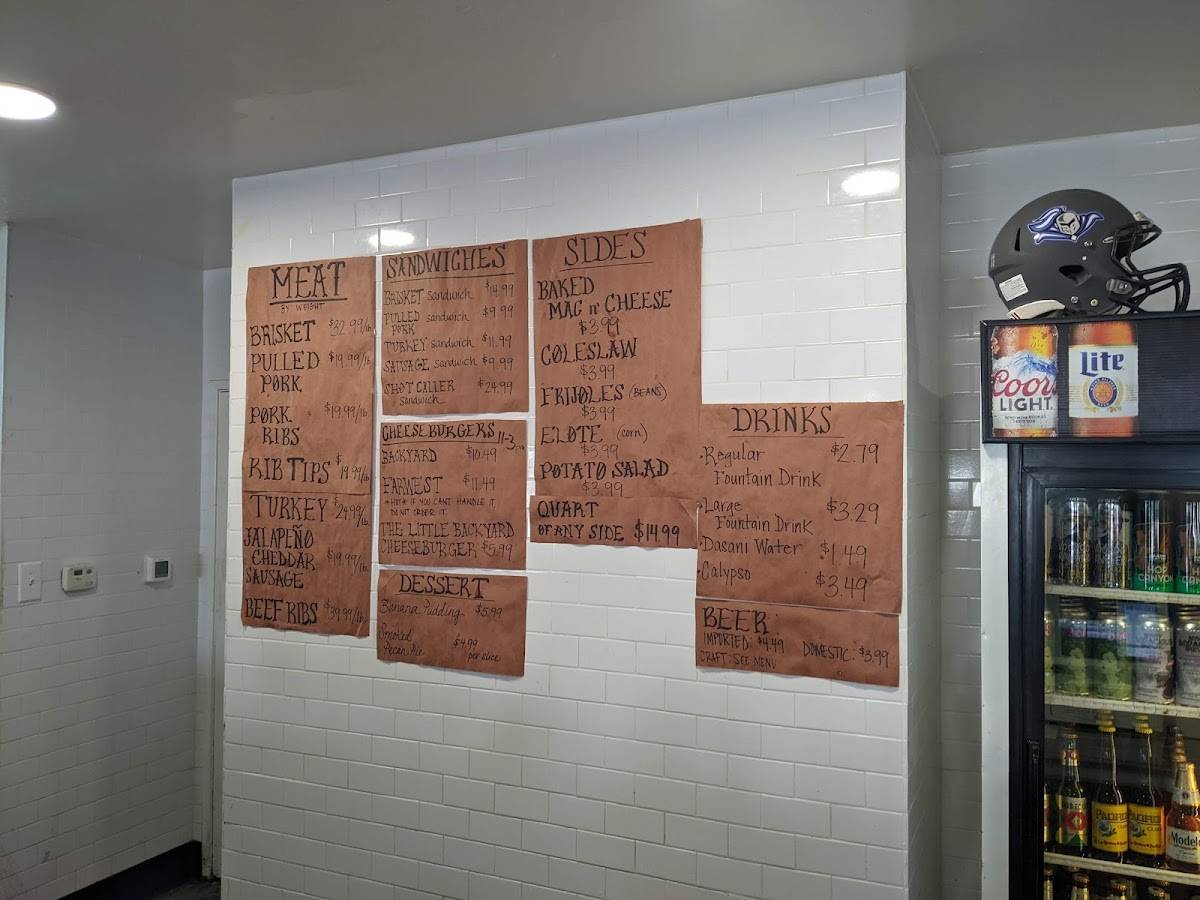 MEAT
BY WEIGHT
BRISKET $32.99/lb
PULLED $19.99/lb
PORK
PORK $19.99/lb
RIBS
RIB TIPS $19.99/lb
TURKEY $24.99/lb
JALAPEÑO
CHEDDAR $19.99/lb
SAUSAGE
BEEF RIBS $39.99/lb
SANDWICHES
BRISKET sandwich $14.99
PULLED sandwich $9.99
PORK
TURKEY sandwich $11.99
SAUSAGE sandwich $9.99
SHOT CALLER $24.99
sandwich
CHEESEBURGERS 11-3pm
BACKYARD $10.49
FARWEST $11.49
HOT IF YOU CANT HANDLE IT,
DONT ORDER IT.
THE LITTLE BACKYARD
CHEESEBURGER $5.99
DESSERT
Banana Pudding $5.99
Smoked $4.99
Pecan Pie per slice
SIDES
BAKED
MAC n' CHEESE
$3.99
COLESLAW
$3.99
FRIJOLES (BEANS)
$3.99
ELOTE (corn)
$3.99
POTATO SALAD
$3.99
QUART
OF ANY SIDE $14.99
DRINKS
• Regular $2.79
Fountain Drink
• Large $3.29
Fountain Drink
• Dasani Water $1.49
• Calypso $3.49
BEER
IMPORTED: $4.49 DOMESTIC: $3.99
CRAFT: SEE MENU
Coors
LIGHT
Lite
HOP
CANYON
PACIFICO
PACIFICO
Modelo